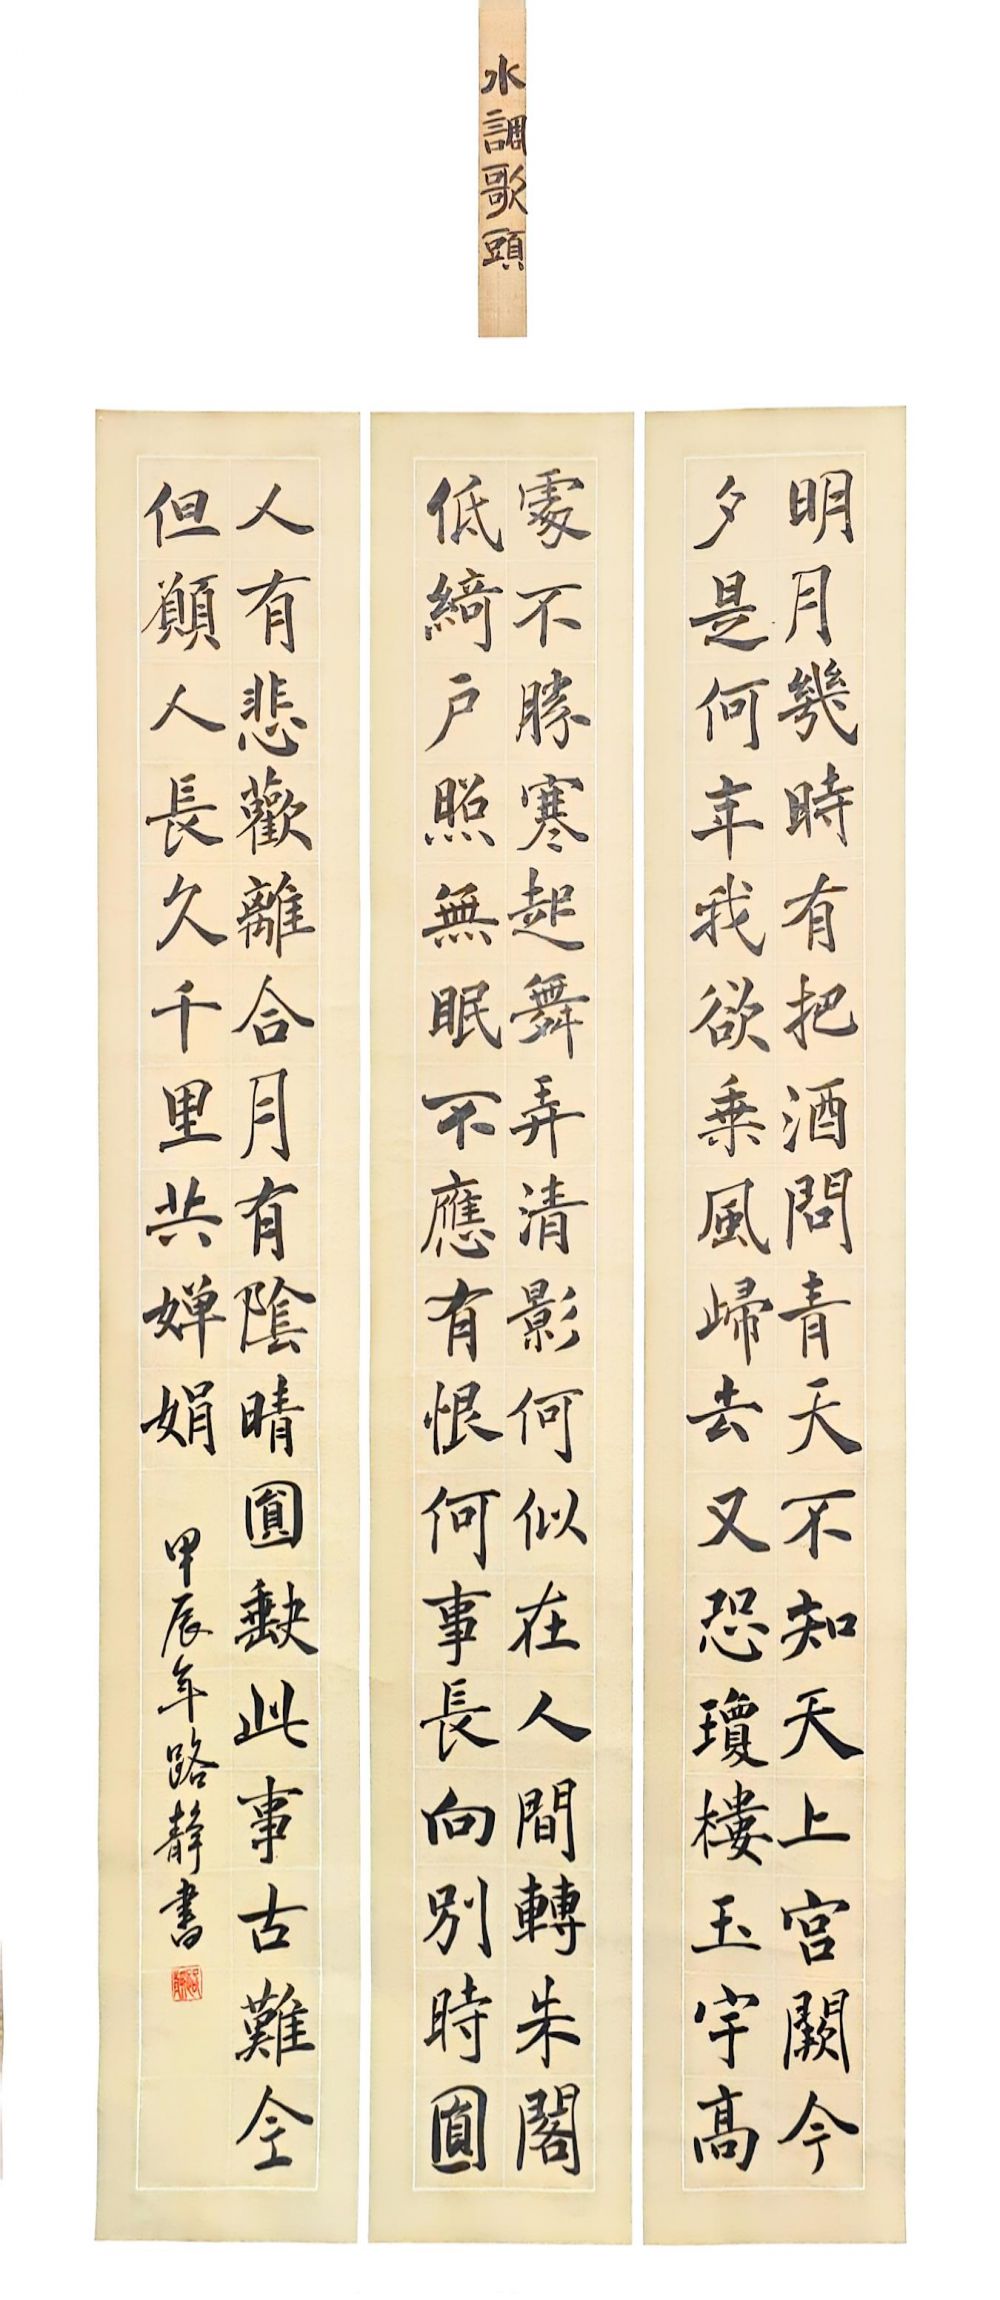 水調歌頭
明月幾時有把酒問青天不知天上宮闕今
夕是何年我欲乘風歸去又恐瓊樓玉宇高
處不勝寒起舞弄清影何似在人間轉朱閣
低綺戶照無眠不應有恨何事長向別時圓
人有悲歡離合月有陰晴圓缺此事古難全
但願人長久千里共嬋娟
甲辰年路靜書